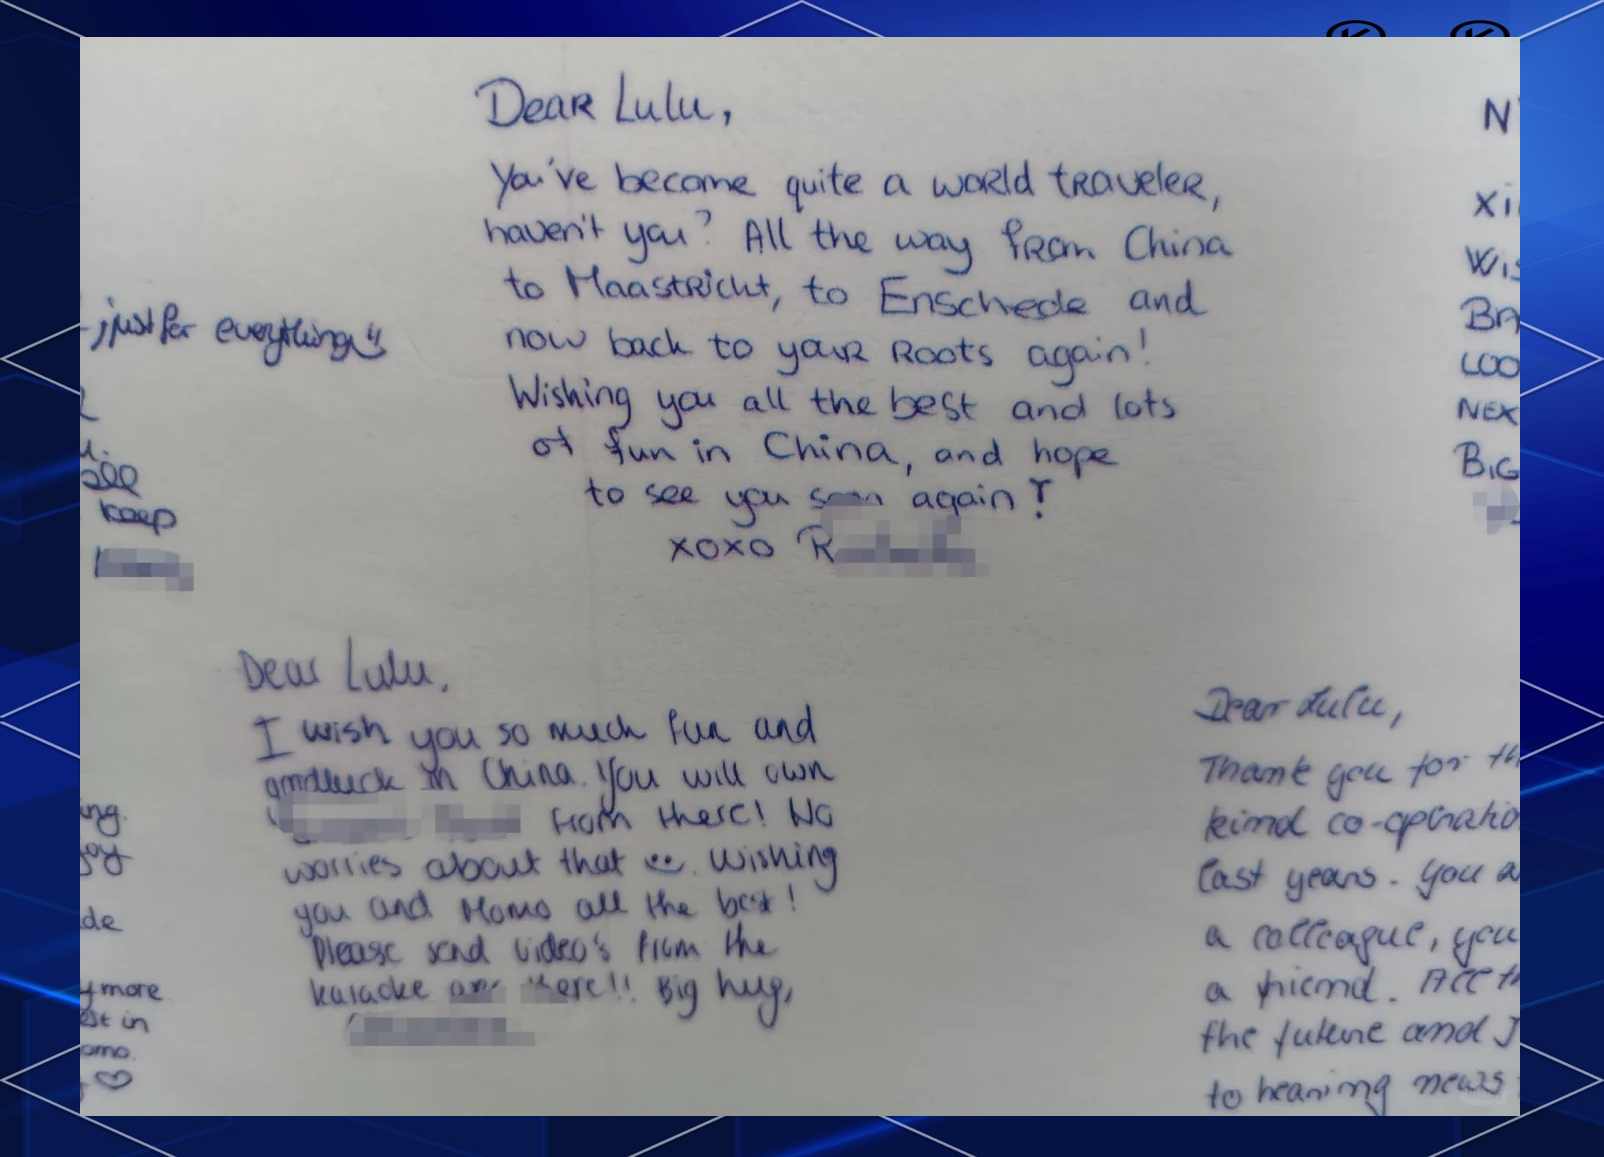 Dear Lulu,
You've become quite a world traveler,
haven't you? All the way from China
to Maastricht, to Enschede and
now back to your roots again!
Wishing you all the best and lots
of fun in China, and hope
to see you soon again!
xoxo R
, just for everything
all
keep
N
Xi
Wis
BR
LOO
NEX
BIG
Dear Lulu,
I wish you so much fun and
goodluck in China. You will own
from there! No
worries about that. Wishing
you and Momo all the best!
Please send video's from the
karaoke over there!! Big hug,
ng.
joy
de
y more
est in
omo.
Dear Lulu,
Thank you for th
kind co-operatio
last years. You a
a colleague, you
a friend. All th
the future and I
to hearing news